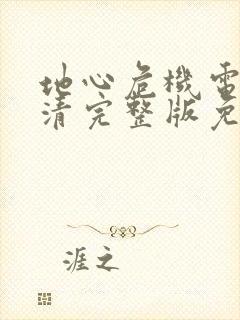 地心危機電
清完整版免
涯之